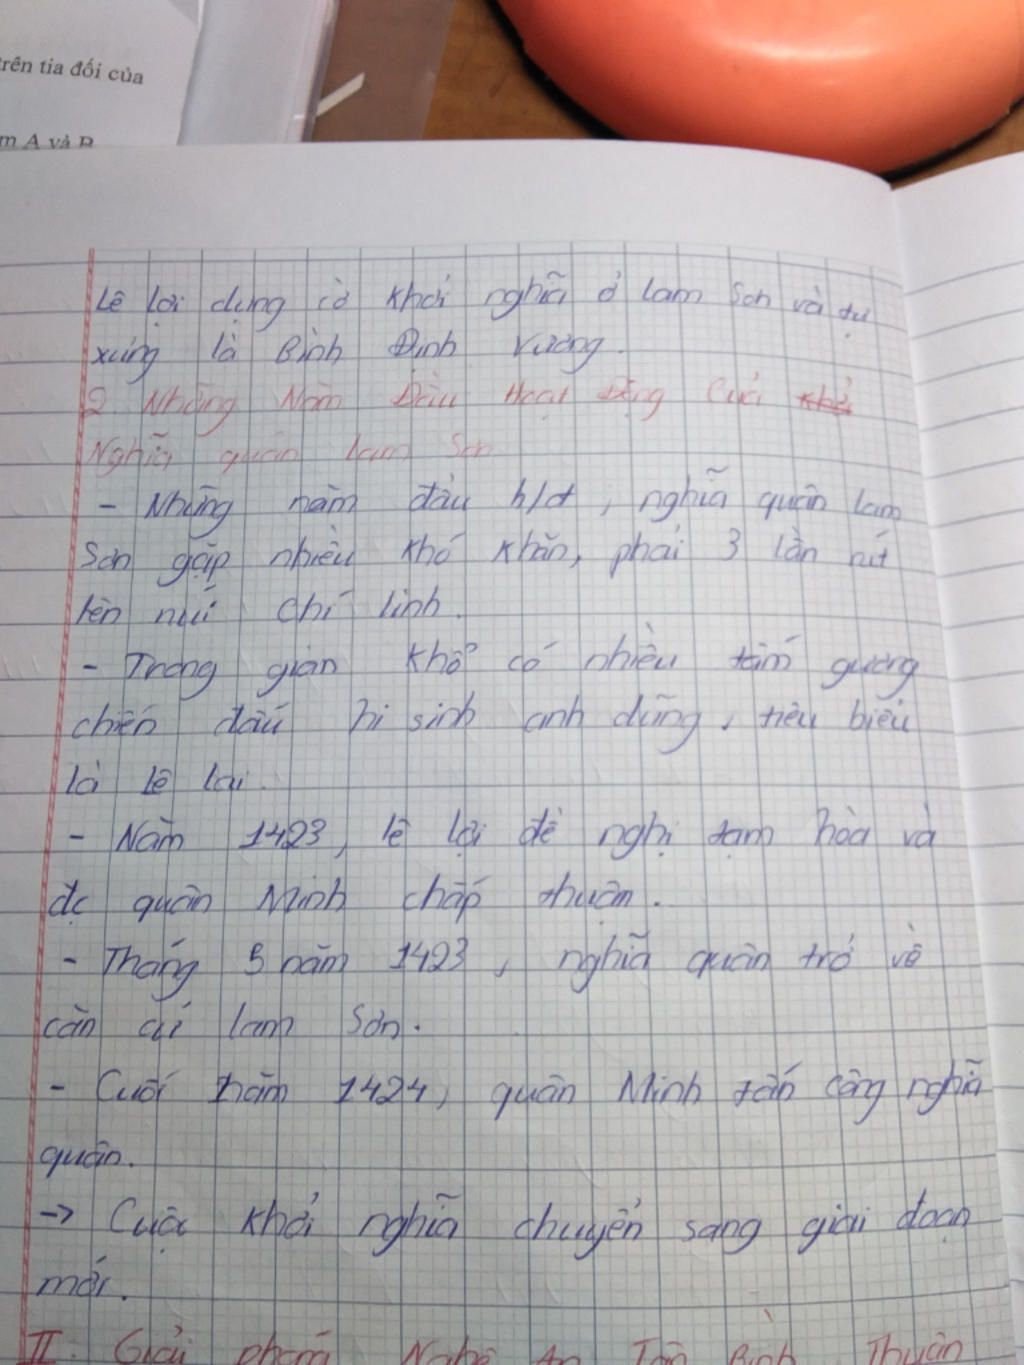 trên tia đối của
m A và B
Lê Lợi dựng cờ khởi nghĩa ở lam Sơn và tự
xưng là Bình Định Vương.
2 Những Năm Đầu Hoạt Động Của
Nghĩa quân lam Sơn
- Những năm đầu h/đ, nghĩa quân lam
Sơn gặp nhiều khó khăn, phải 3 lần rút
lên núi chí linh.
- Trong gian khổ có nhiều tấm gương
chiến đấu hi sinh anh dũng, tiêu biểu
là lê lai.
- Năm 1423, lê lợi đề nghị tạm hòa và
đc quân Minh chấp thuận.
- Tháng 5 năm 1423, nghĩa quân trở về
căn cứ lam Sơn.
- Cuối năm 1424, quân Minh tấn công nghĩa
quân.
→ Cuộc khởi nghĩa chuyển sang giai đoạn
mới.
II. Giải phóng Nghệ An Tân Bình Thuận